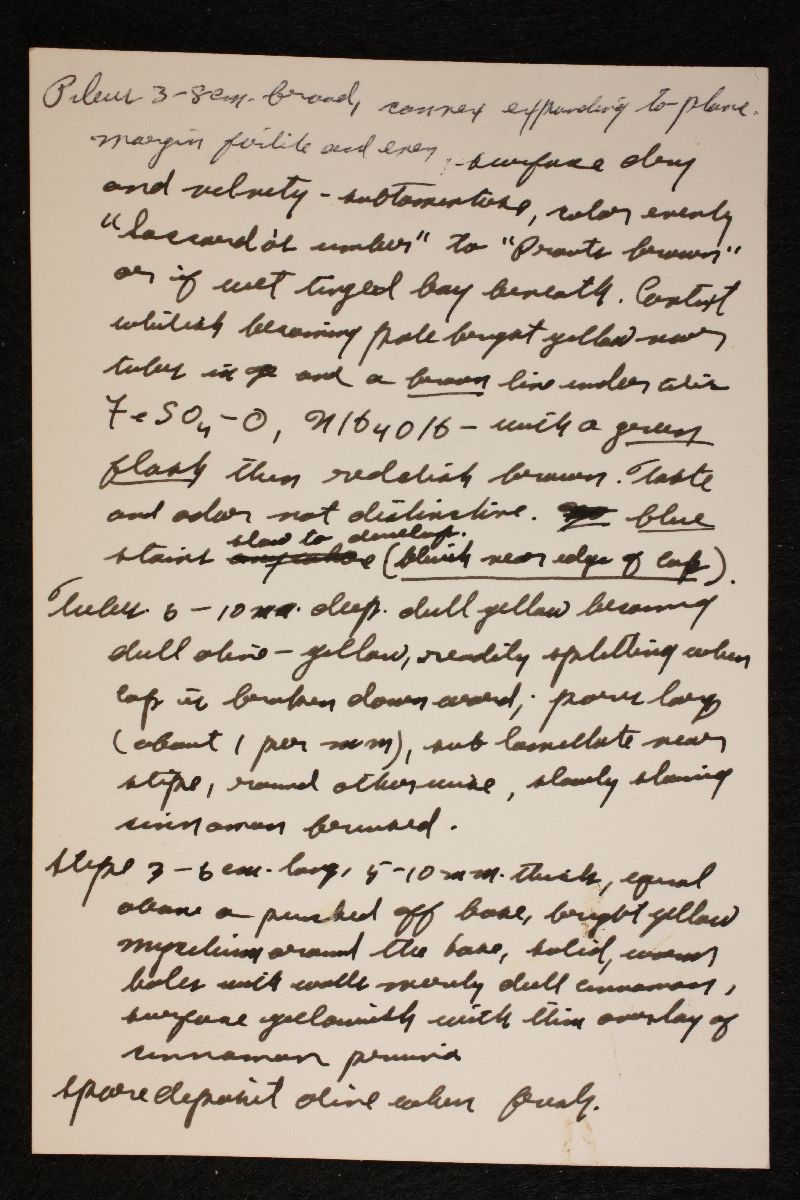 Pileus 3-8 cm. broad, convex expanding to plane.
margin fertile and even, - surface dry
and velvety - subtomentose, color evenly
"Saccardo's umber" to "Prouts brown"
or if wet tinged bay beneath. Context
whitish becoming pale bright yellow near
tubes and a brown line under cutis
FeSO4-O, NH4OH - with a green
flash then reddish brown. Taste
and odor not distinctive. blue
slow to develop.
stains (bluish near edge of cap).
Tubes. 6-10 mm. deep. dull yellow becoming
dull olive-yellow, readily splitting when
cap is broken downward; pores large
(about 1 per mm), sub lamellate near
stipe, round otherwise, slowly staining
cinnamon bruised.
Stipe 3-6 cm. long, 5-10 mm. thick, equal
above a pinched off base, bright yellow
mycelium around the base, solid, worm
holes with walls merely dull cinnamon,
surface yellowish with thin overlay of
cinnamon pruina
Spore deposit olive when fresh.